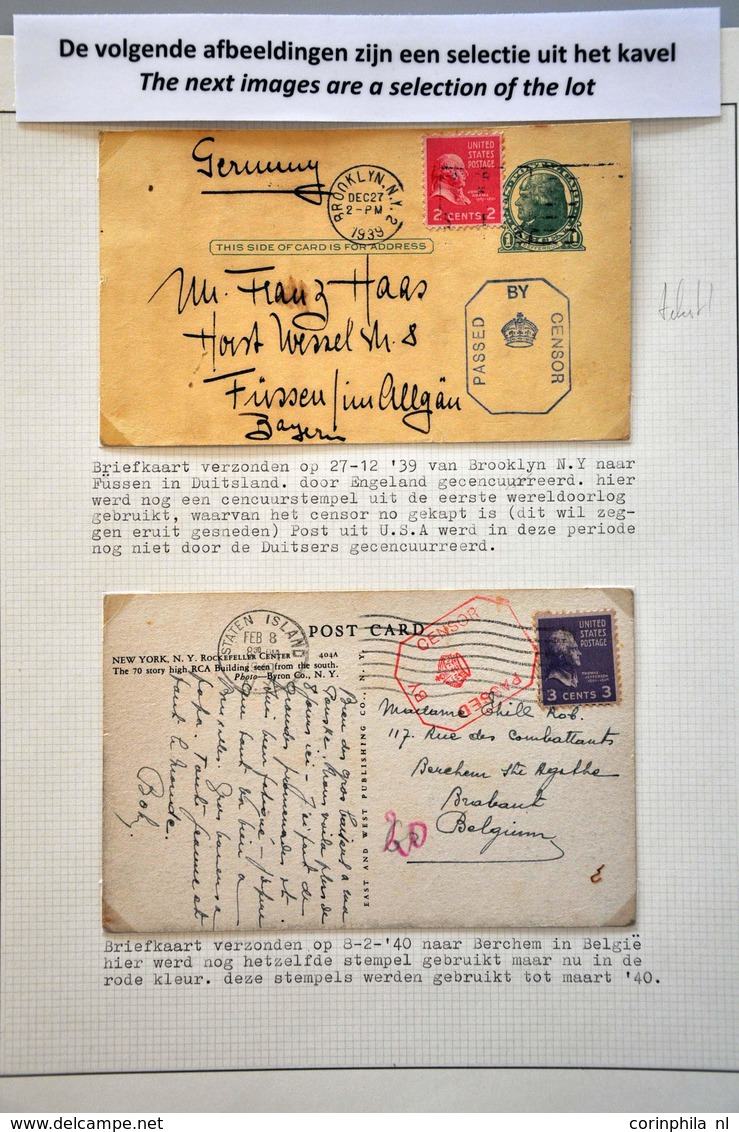 De volgende afbeeldingen zijn een selectie uit het kavel
The next images are a selection of the lot
Germany
BROOKLYN, N.Y. 2
DEC 27
2-PM
1939
UNITED
STATES
POSTAGE
2 CENTS 2
THIS SIDE OF CARD IS FOR ADDRESS
PASSED BY CENSOR
Mr. Franz Haas
Horst Wessel Str. 8
Füssen/im Allgäu
Bayern
Briefkaart verzonden op 27-12 '39 van Brooklyn N.Y naar
Füssen in Duitsland. door Engeland gecencuurreerd. hier
werd nog een cencuurstempel uit de eerste wereldoorlog
gebruikt, waarvan het censor no gekapt is (dit wil zeg-
gen eruit gesneden) Post uit U.S.A werd in deze periode
nog niet door de Duitsers gecencuurreerd.
STATEN ISLAND
FEB 8
POST CARD
PASSED BY CENSOR
UNITED
STATES
POSTAGE
THOMAS
JEFFERSON
3 CENTS 3
NEW YORK, N. Y. ROCKEFELLER CENTER 404A
The 70 story high RCA Building seen from the south.
Photo—Byron Co., N. Y.
EAST WEST AND PUBLISHING CO., N. Y.
Madame Chill Rob.
117. Rue des Combattants
Berchem Ste Agathe
Brabant
Belgium
20
Bien des gros baisers a ma
Nous voila plus de
ici - J'ai fait de
grandes promenades et
suis bien fatigué -
que tout va bien a
Bruxelles. Gros baisers a
papa. Tante Jeanne et
tout le monde.
Bob.
Briefkaart verzonden op 8-2-'40 naar Berchem in België
hier werd nog hetzelfde stempel gebruikt maar nu in de
rode kleur. deze stempels werden gebruikt tot maart '40.
www.delcampe.net
corinphila nl